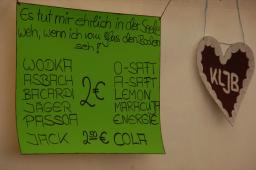 Es tut mir ehrlich in der Seele
weh, wenn ich vom Glas den Boden
seh!
WODKA O-SAFT
ASBACH A-SAFT
BACARDI 2€ LEMON
JÄGER MARACUJA
PASSOA ENERGIE
JACK 2,50€ COLA
KLJB